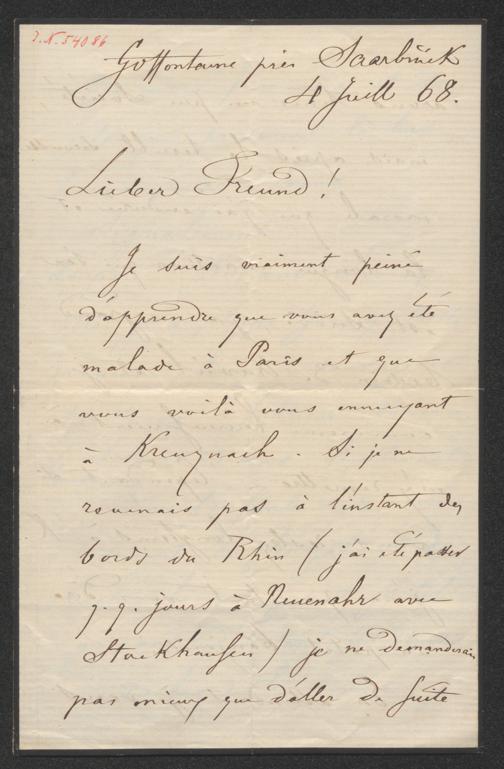 J.N. 54086
Goffontaine près Saarbrück
4 Juill 68.
Lieber Freund!
Je suis vraiment peiné
d'apprendre que vous avez été
malade à Paris et que
vous voilà vous ennuyant
à Kreuznach. Si je ne
revenais pas à l'instant des
bords du Rhin (j'ai été passer
q.q. jours à Neuenahr avec
Stockhausen) je ne demanderais
pas mieux que d'aller de suite